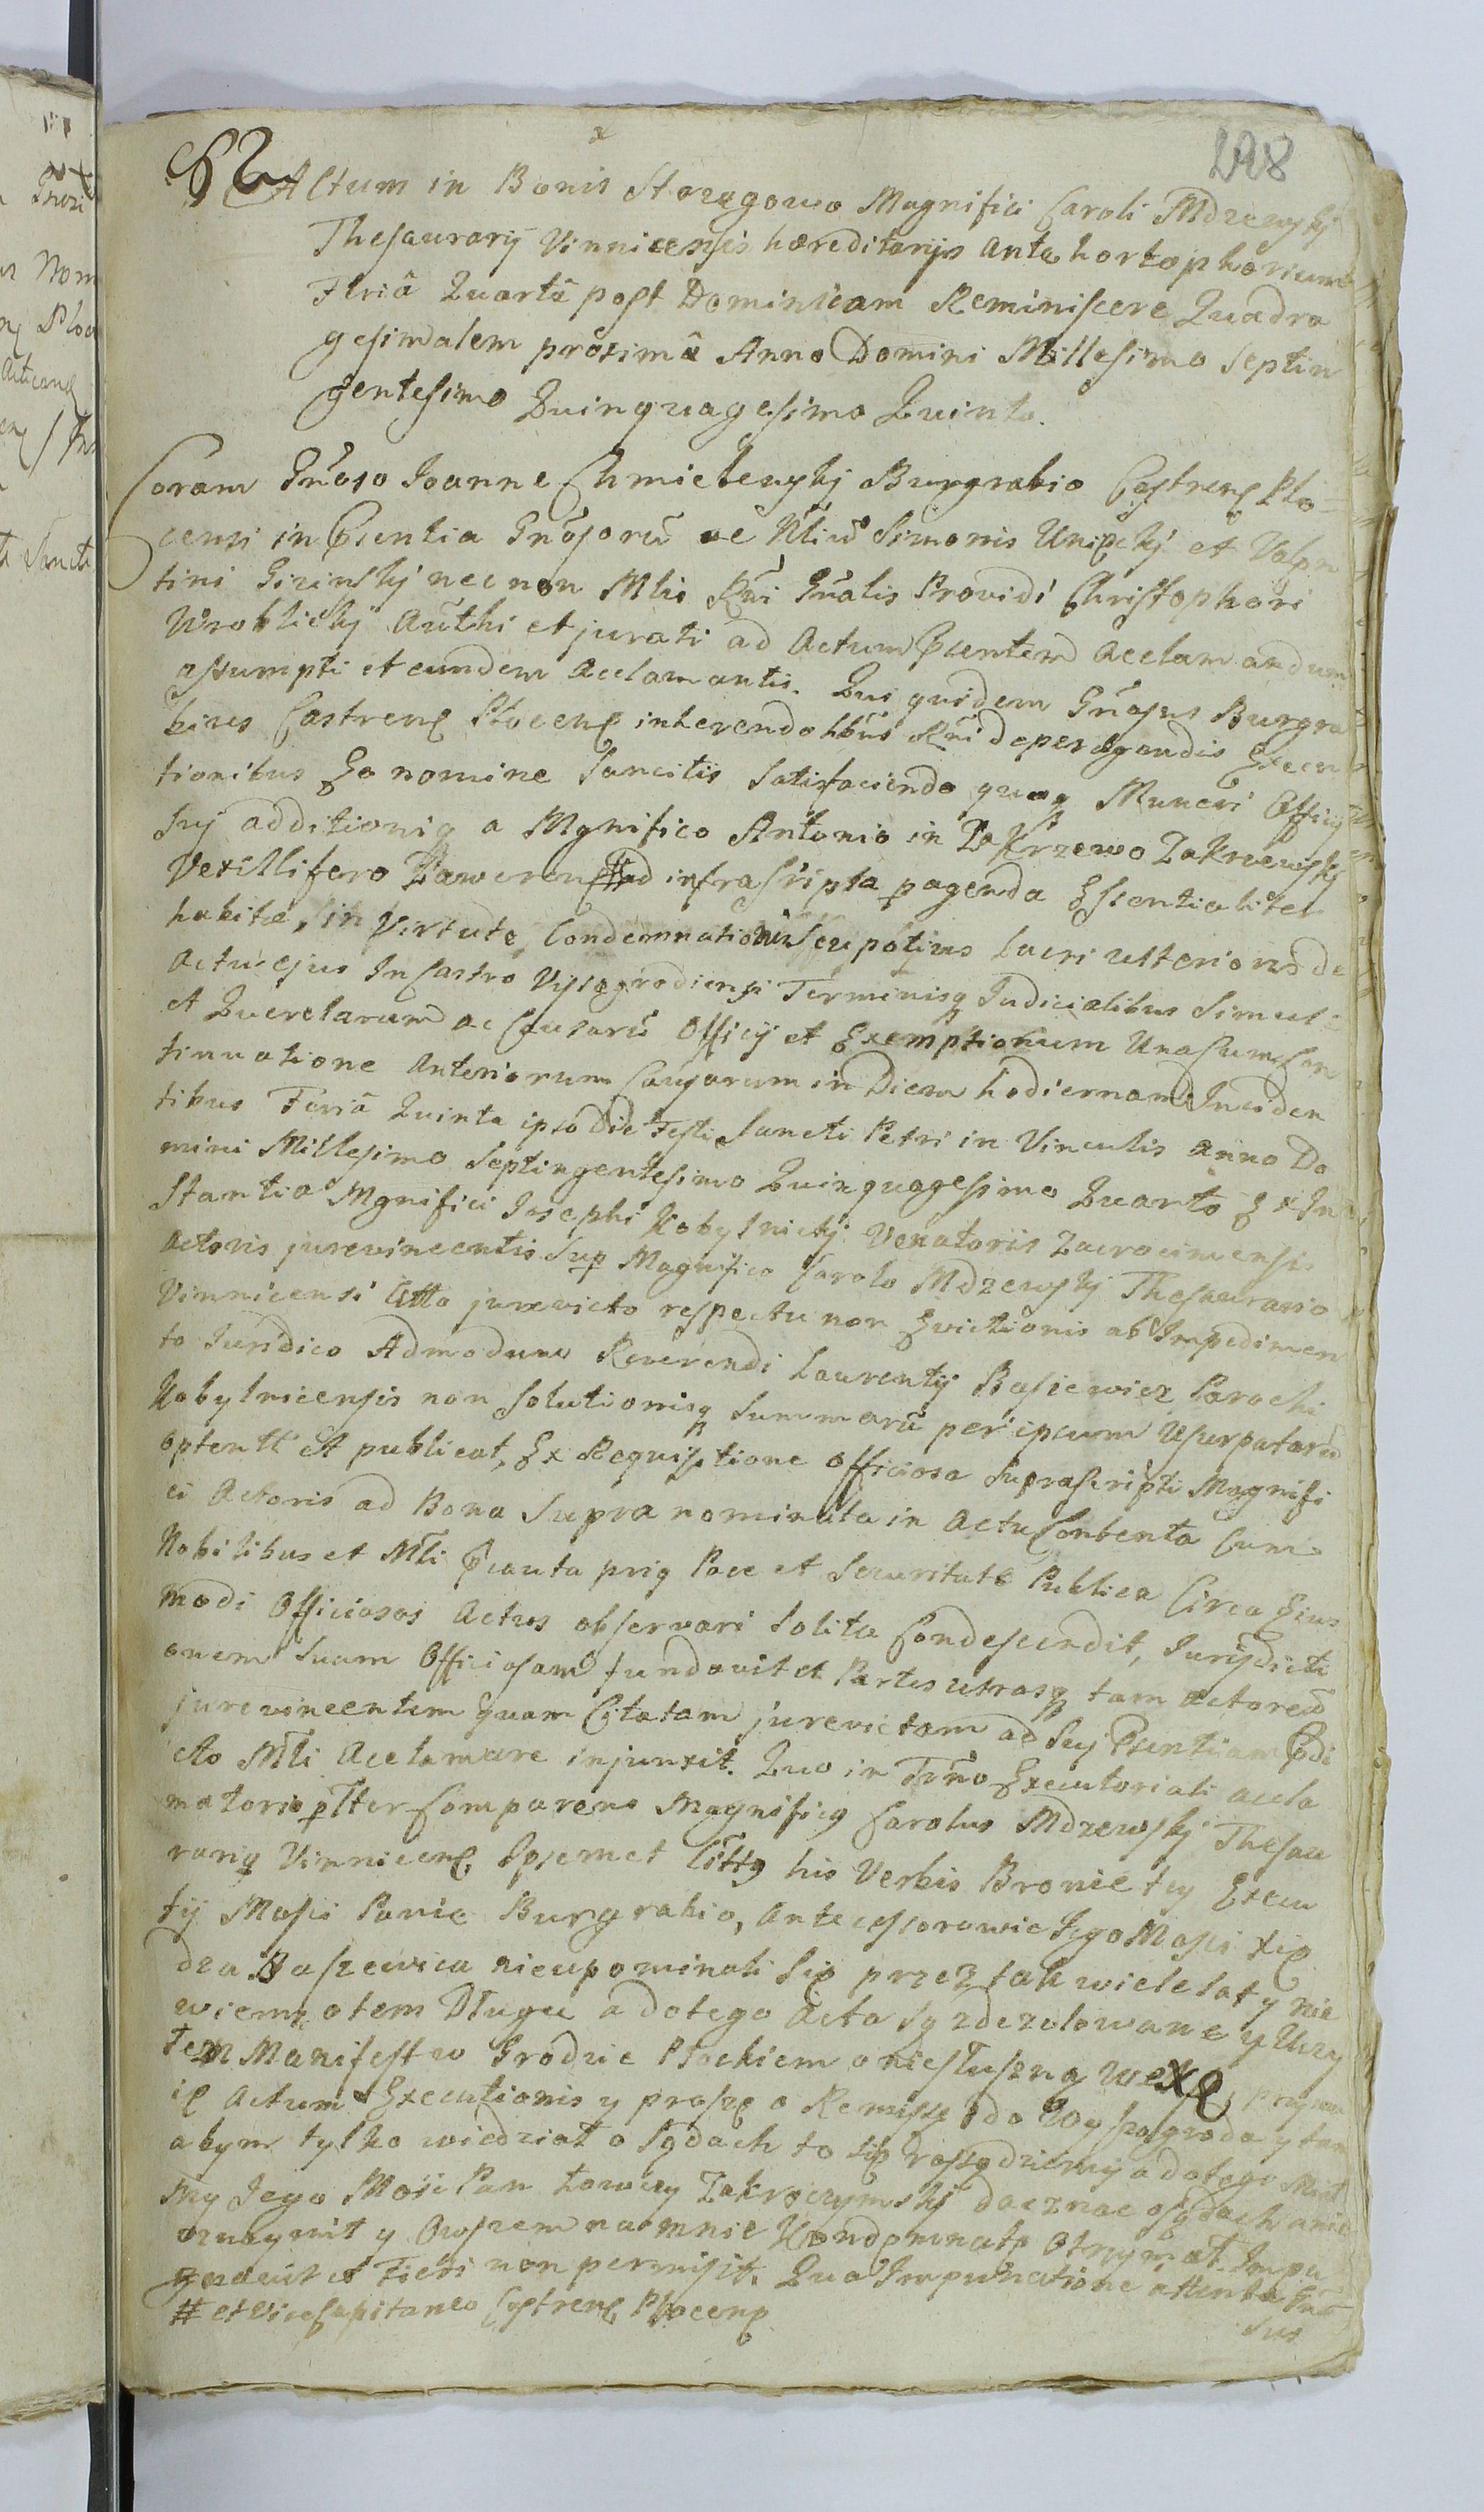 298
Actum in Bonis Starogowo Magnifici Caroli Mdzewskj
Thesaurarij Vinnicensis hæreditarijs Ante hortophorium
Feriâ Quartâ post Dominicam Reminiscere Quadra
gesimalem proximâ Anno Domini Millesimo Septin
gentesimo Quinquagesimo Quinto.
Coram Gnoso Joanne Chmielewskj Burgrabio Castrens Plo=
censi in Psentia Gnosorũ ac Nliũ Simonis Unieckj et Valen
tini Gizinskj nec non Mlis Rni Gnalis Providi Christophori
Wroblickj Authi et jurati ad Actum Psentem Acclamandum
assumpti et eundem acclamantis. Qui quidem Gnosus Burgra
bius Castrens Plocens inhærendo Lbus Rni de peragendis Execu
tionibus Eo nomine Sancitis Satisfaciendo quoq Muneri Officij
Sui additioniq a Mgnifico Antonio in Zakrzewo Zakrzewskj
Vexillifero Zawcrens # ad infrascripta pagenda Essentialiter
habitæ, in Virtute Condemnationis seu potius Lucri ulterioris de
Actu ejus In Castro Vyssogrodiensi Terminisq Judicialibus Simul
et Querelarum ac Causarũ Officij et Exemptionum Una Cum Con
tinuatione Anteriorum Causarum in Diem hodiernam Inciden
tibus Feriâ Quinta ipso Die Festi Sancti Petri in Vinculis Anno Do
mini Millesimo Septingentesimo Quinquagesimo Quarto Ex In
stantia Mgnifici Josephi Kobylnickj Venatoris Zacrocimensis
Actoris jurevincentis Sup Magnifico Carolo Mdzewskj Thesaurario
Vinnicensi Citto jurevicto respectu non Evictionis ab Impedimen
to Juridico Admodum Reverendi Laurentij Basiewicz Parochi
Kobylnicensis non Solutionisq Summarũ per ipsum Usurpatarũ
optentt et publicat, Ex Requisitione officiosa Suprascripti Magnifi
ci Actoris ad Bona Supra nominata in Actu Contenta Cum
Nobilibus et Mli Pcauta priq Pace et Securitate Publica Circa Eius
modi Officiosos Actus observari Solita Condescendit, Jurisdicti
onem Suam Officiosam fundavit et Partes utrasq tam Actoream
jurevincentem quam Citatam jurevictam ad Sui Psentiam Pdi
cto Mli Acclamare injunxit. Quo in Trno Executoriali accla
matorio pltter Comparens Magnificq Carolus Mdzewskj Thesau
rariq Vinnicens Ipsemet Cittq his Verbis Bronie tey Execu
tij Mosci Panie Burgrabio, Antecessorowie Jego Mosci Xię
dza Baszewica nieupominali się przez tak wiele lat y nie
wiemy o tem Dlugu a dotego Acta są zdezolowane y Uczy
tem Manifest w Grodzie Plockiem o niesluszną wexę, przyimu
ię Actum Executionis y proszę o Remissę do Wyszogroda y tam
abym tylko wiedział o Sądach to się rossądziemy a dotego miał
my Jego Mosci Pan Łowczy Zakroczymskj dac znac o sądach a nie
oznaymił y Owszem na mnie Kondemnatę otrzymał. Impu
gnavit et Fieri non permisit. Qua Impugnatione attenta Gno
sus
# et Vice Capitaneo Castrens Plocens